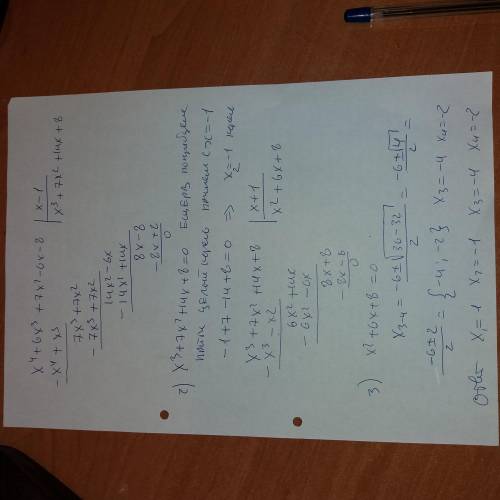 x⁴+6x³+7x²-6x-8 | x-1
-x⁴+x³ x³+7x²+14x+8
7x³+7x²
-7x³+7x²
14x²-6x
-14x²+14x
8x-8
-8x+8
0
2) x³+7x²+14x+8=0
найти целый корень начнем с x=-1
-1+7-14+8=0 ⇒ x₂=-1 корень
x³+7x²+14x+8 | x+1
-x³-x² x²+6x+8
6x²+14x
-6x²-6x
8x+8
-8x-8
0
3) x²+6x+8=0
x₃,₄=-6±√36-32/2=-6±√4/2=
-6±2/2={-4;-2} x₃=-4 x₄=-2
Ответ x₁=1 x₂=-1 x₃=-4 x₄=-2